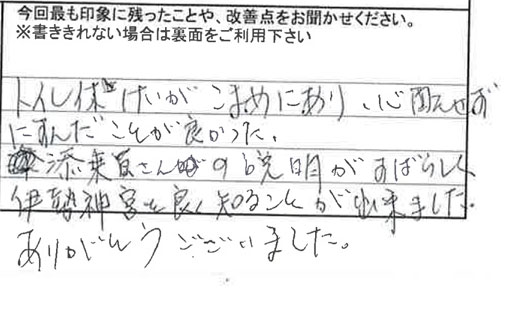 今回最も印象に残ったことや、改善点をお聞かせください。
※書ききれない場合は裏面をご利用下さい
トイレ休けいがこまめにあり、心配せず
にすんだことが良かった。
添乗員さんの説明がすばらしく
伊勢神宮を良く知ることが出来ました。
ありがとうございました。